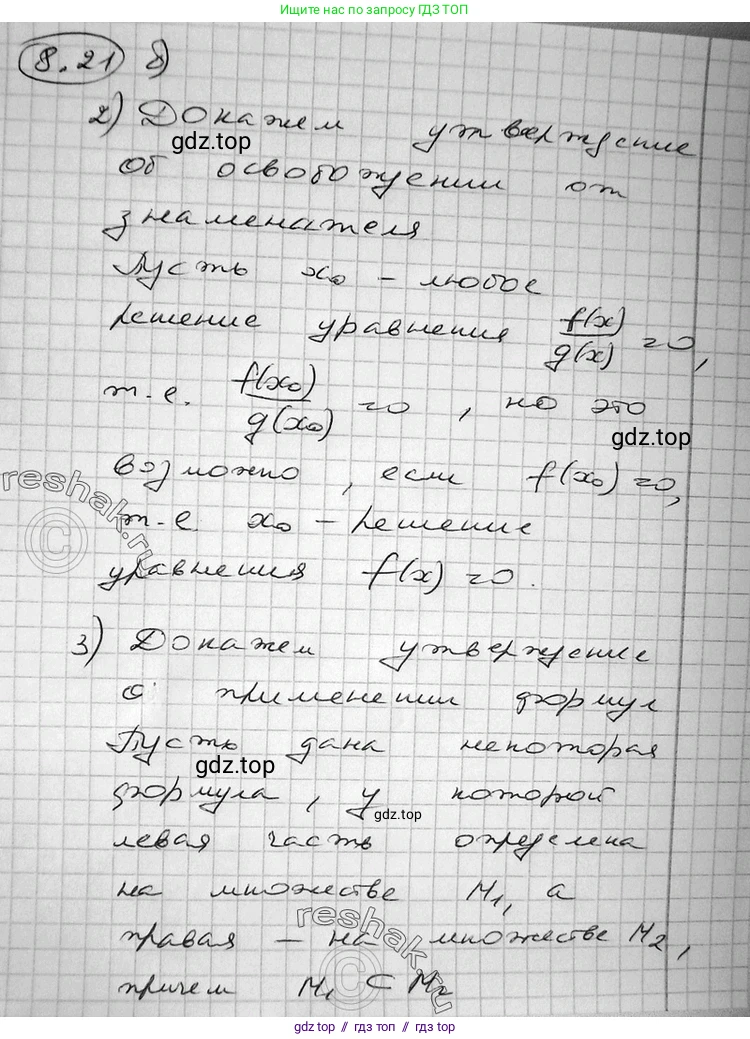 Пришли нам решения по запросу от ГДЗ ТОП
8.21 б)
2) Докажем утверждение
gdz.top
об освобождении от
знаменателя
Пусть x₀ – любое
решение уравнения f(x)/g(x) = 0,
т.е. f(x₀)/g(x₀) = 0, но это
gdz.top
возможно, если f(x₀) = 0,
reshak.ru
т.е x₀ – решение
уравнения f(x) = 0.
3) Докажем утверждение
о применении формул
Пусть дана некоторая
gdz.top
формула, у которой
gdz.top
левая часть определена
на множестве M₁, а
reshak.ru
правая – на множестве M₂,
причем M₁ ⊂ M₂
gdz.top // гдз топ // gdz top